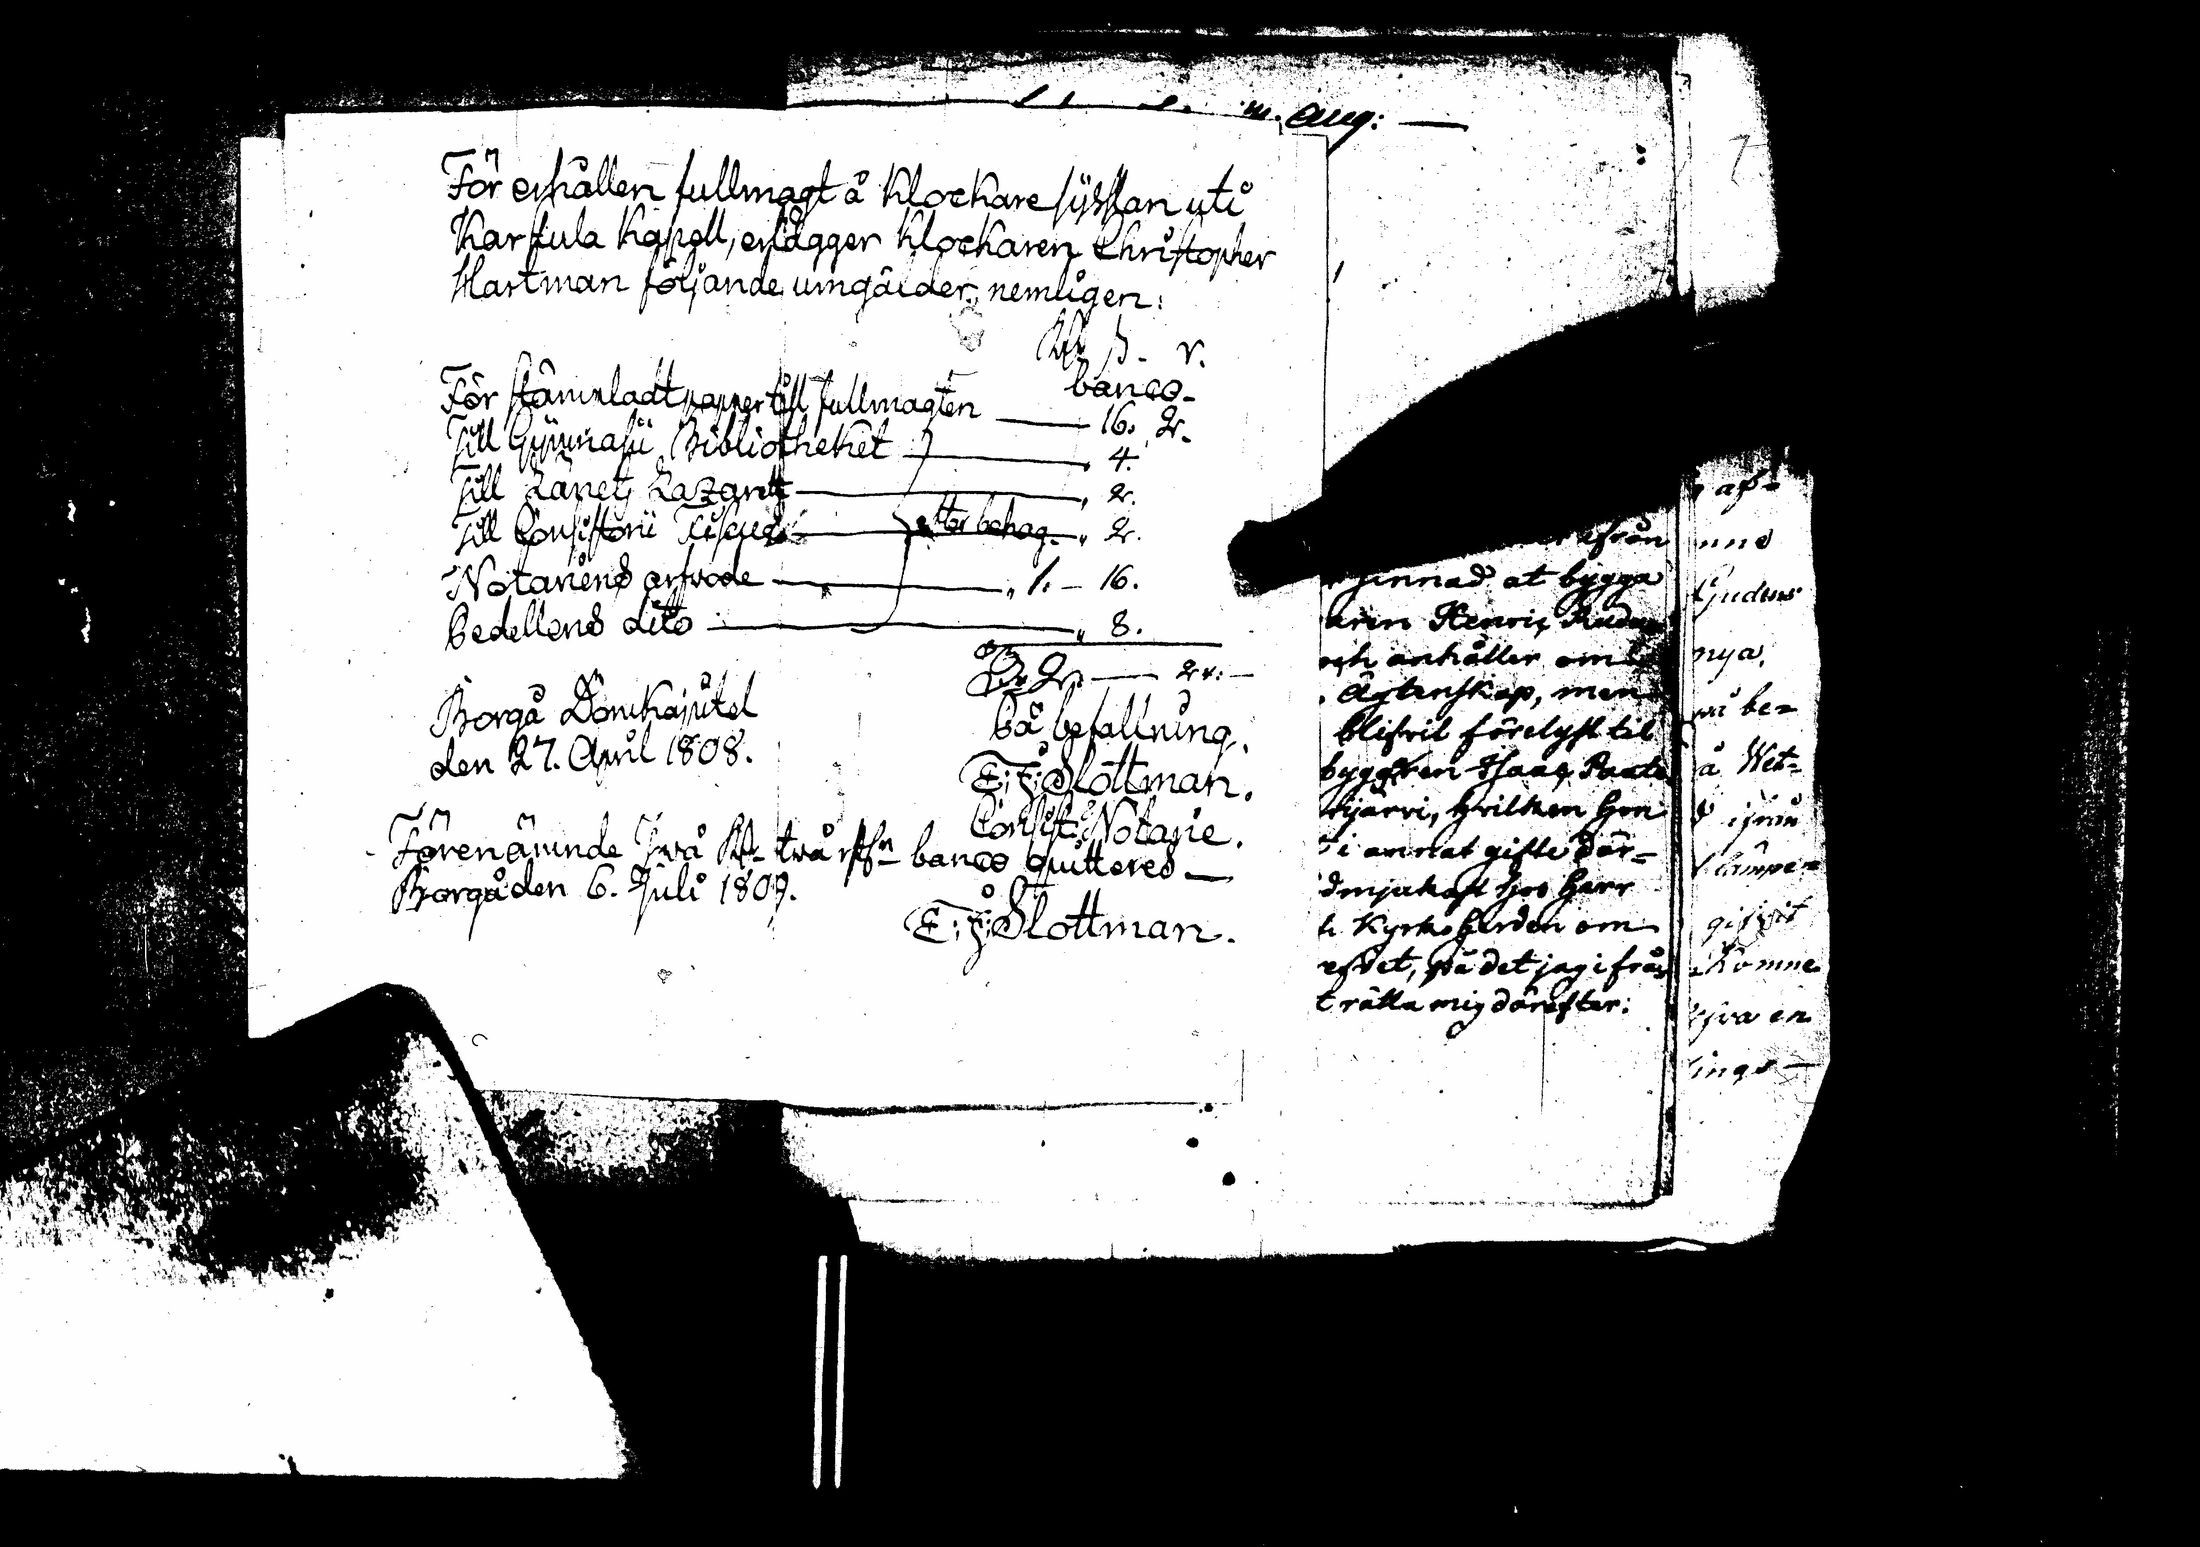 m. Aug: —
För erhållen fullmagt å Klockare syslan uti
Karstula Kapell, erlägger Klockaren Christopher
Hartman följande umgälder, nemligen:
Rd ß. r.
banco.
För stämpladt papper till fullmagten — 16. 2.
Till Gymnasii Bibliotheket — 4.
Till Länets Lazarett — 2.
Till Consistorii Fiscus — efter behag. — 2.
Notariens arfvode — 1. – 16.
Bedellens dito — 8.
Rd 2. —
Borgå Domkapitel
den 27. April 1808.
På befallning,
E: J: Slottman.
Consist: Notarie.
Förenämnde två Rd två banco quitteras —
Borgå den 6. Juli 1809.
E: J: Slottman.
ifrån
sinnad at bygga
aren Henric
och anhåller om
Ägtenskap, men
blifvit förelyst til
byggaren Isaac
järvi, hvilken hon
i annat gifte där=
ödmjukast hos Herr
Kyrkoherden om
det, på det jag ifrån
rätta mig därefter:
af=
nya,
be=
å Wet=
ifrån
gifvit
Komne
en